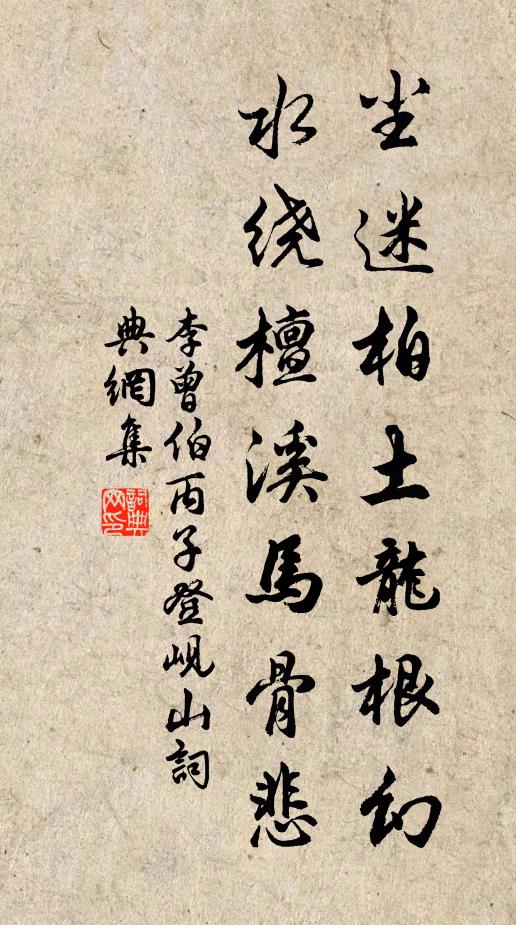 尘迷柏土龍根幻
水绕檀溪馬骨悲
李曾伯丙子登岘山詞
典網集
詞典網印